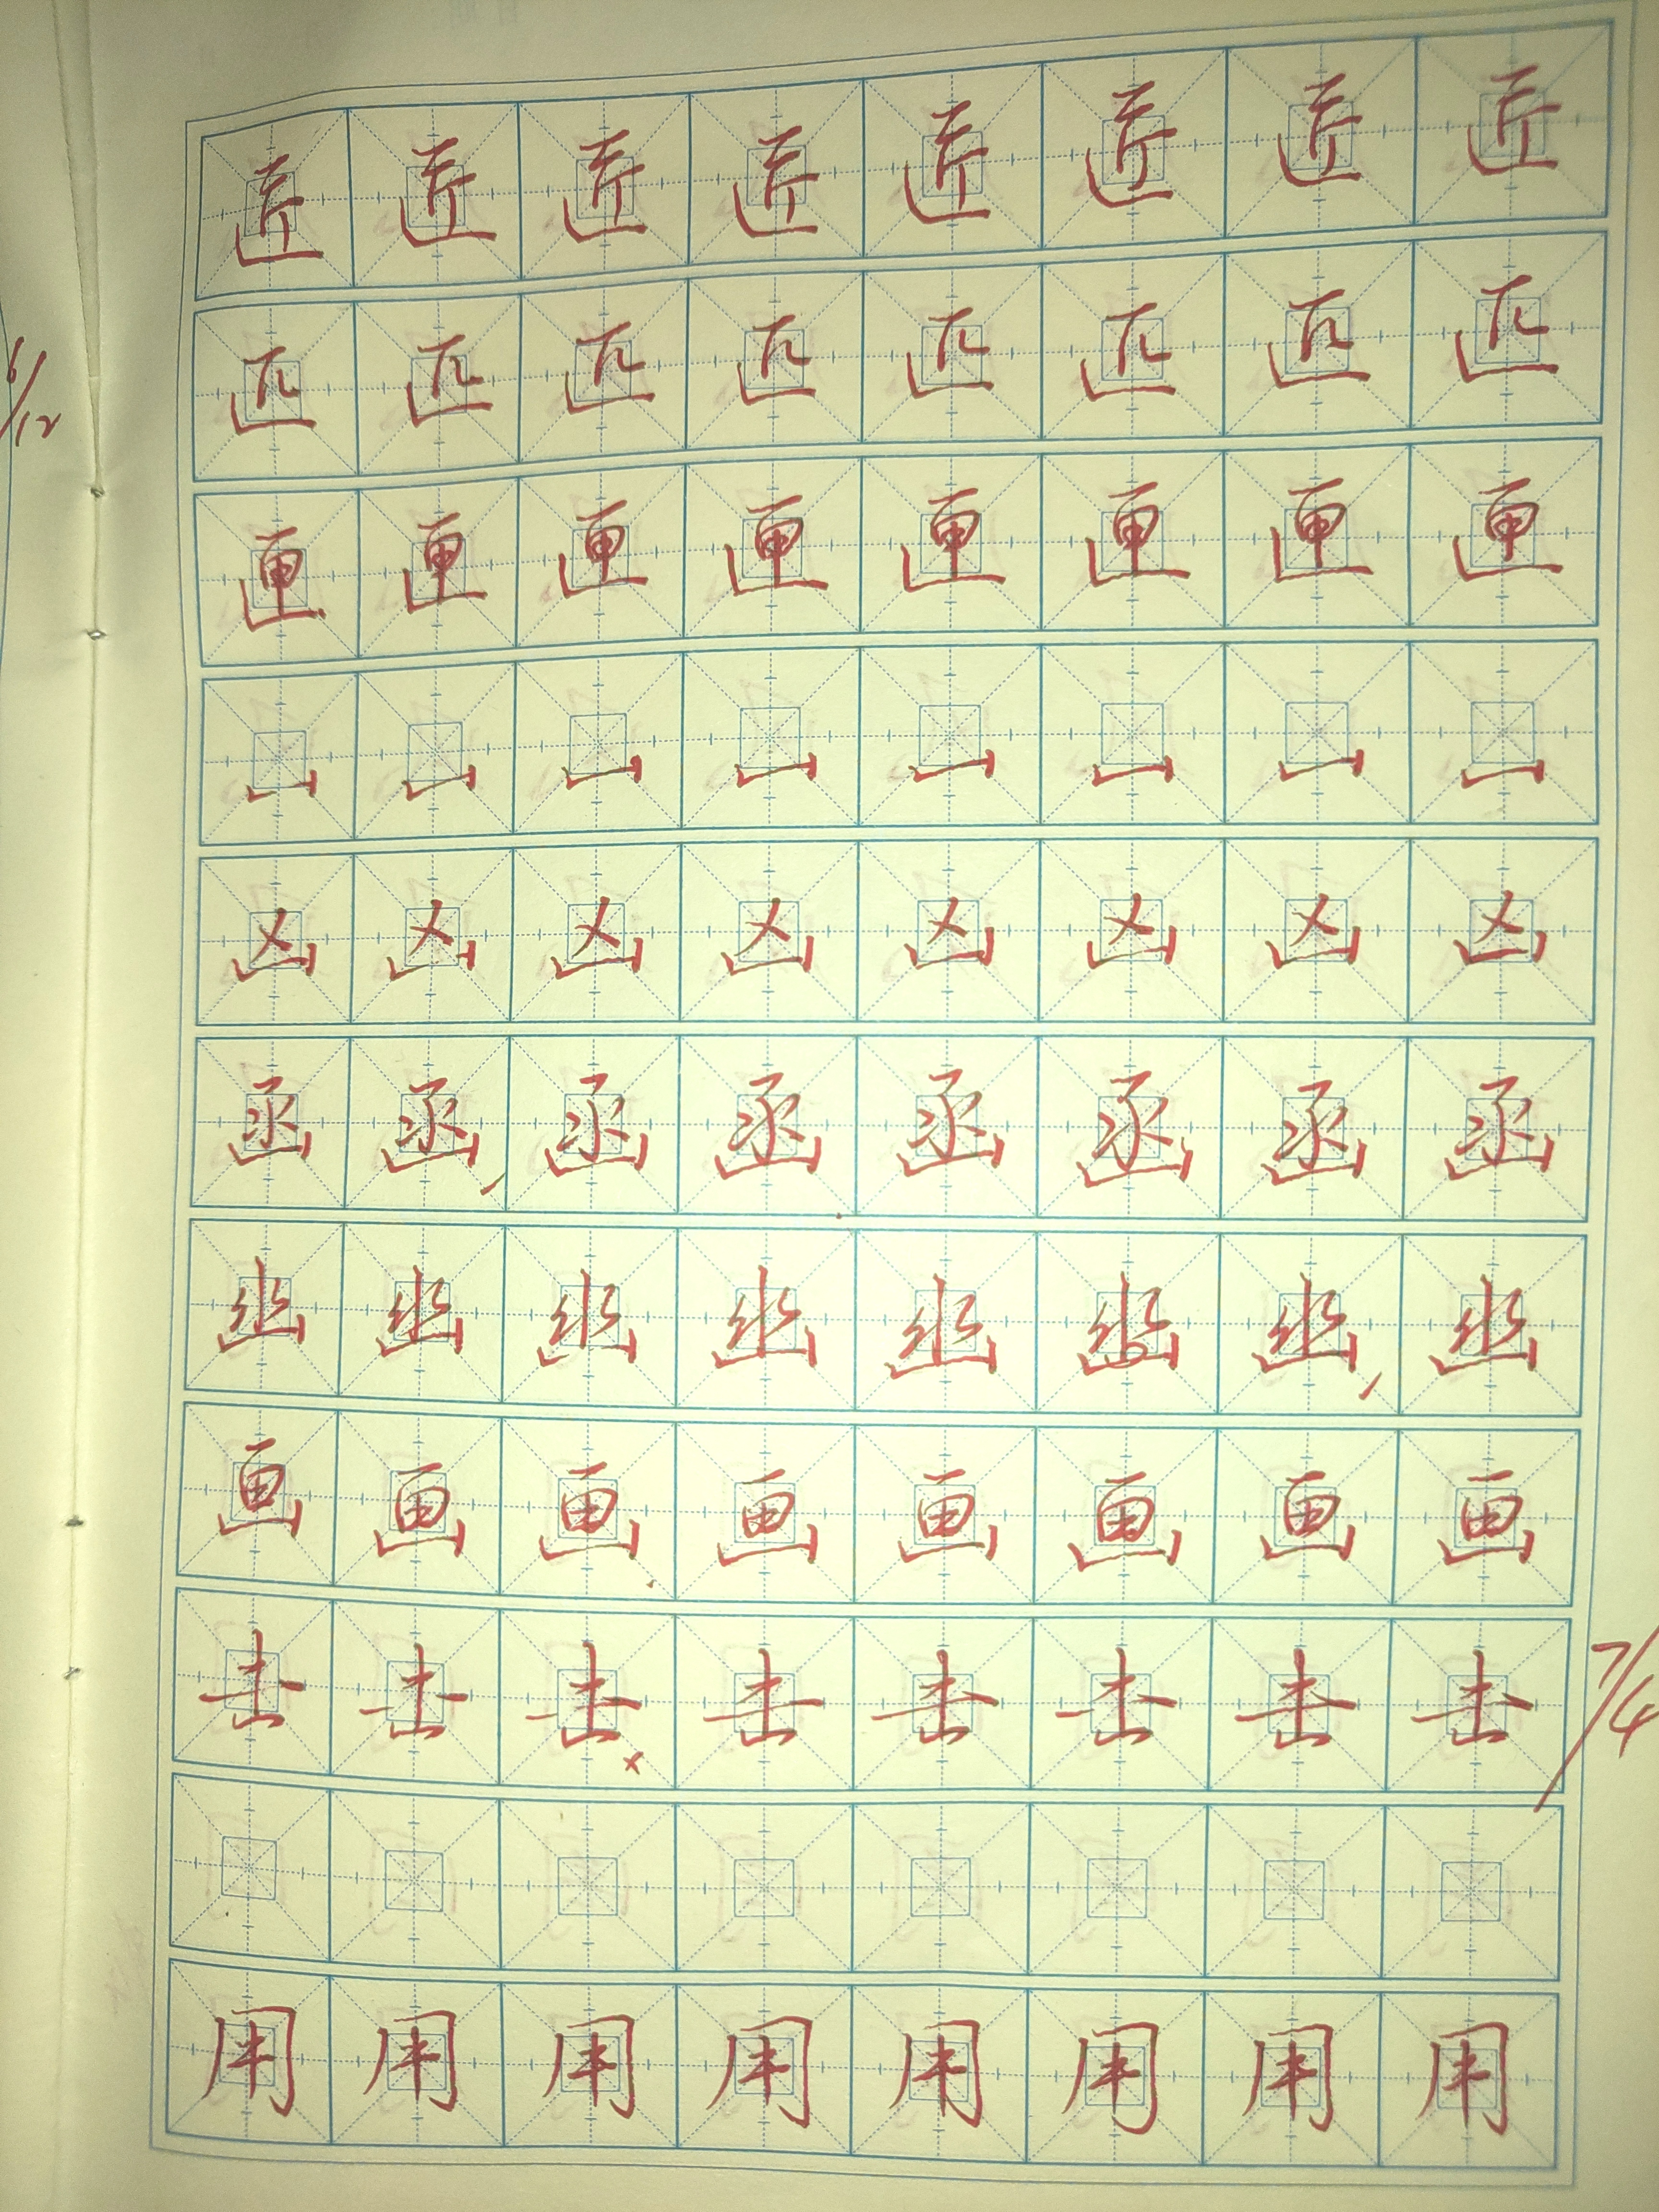 6/12
匠匠匠匠匠匠匠匠
匹匹匹匹匹匹匹匹
匣匣匣匣匣匣匣匣
凵凵凵凵凵凵凵凵
凶凶凶凶凶凶凶凶
函函函函函函函函
幽幽幽幽幽幽幽幽
画画画画画画画画
击击击击击击击击
7/4
用用用用用用用用